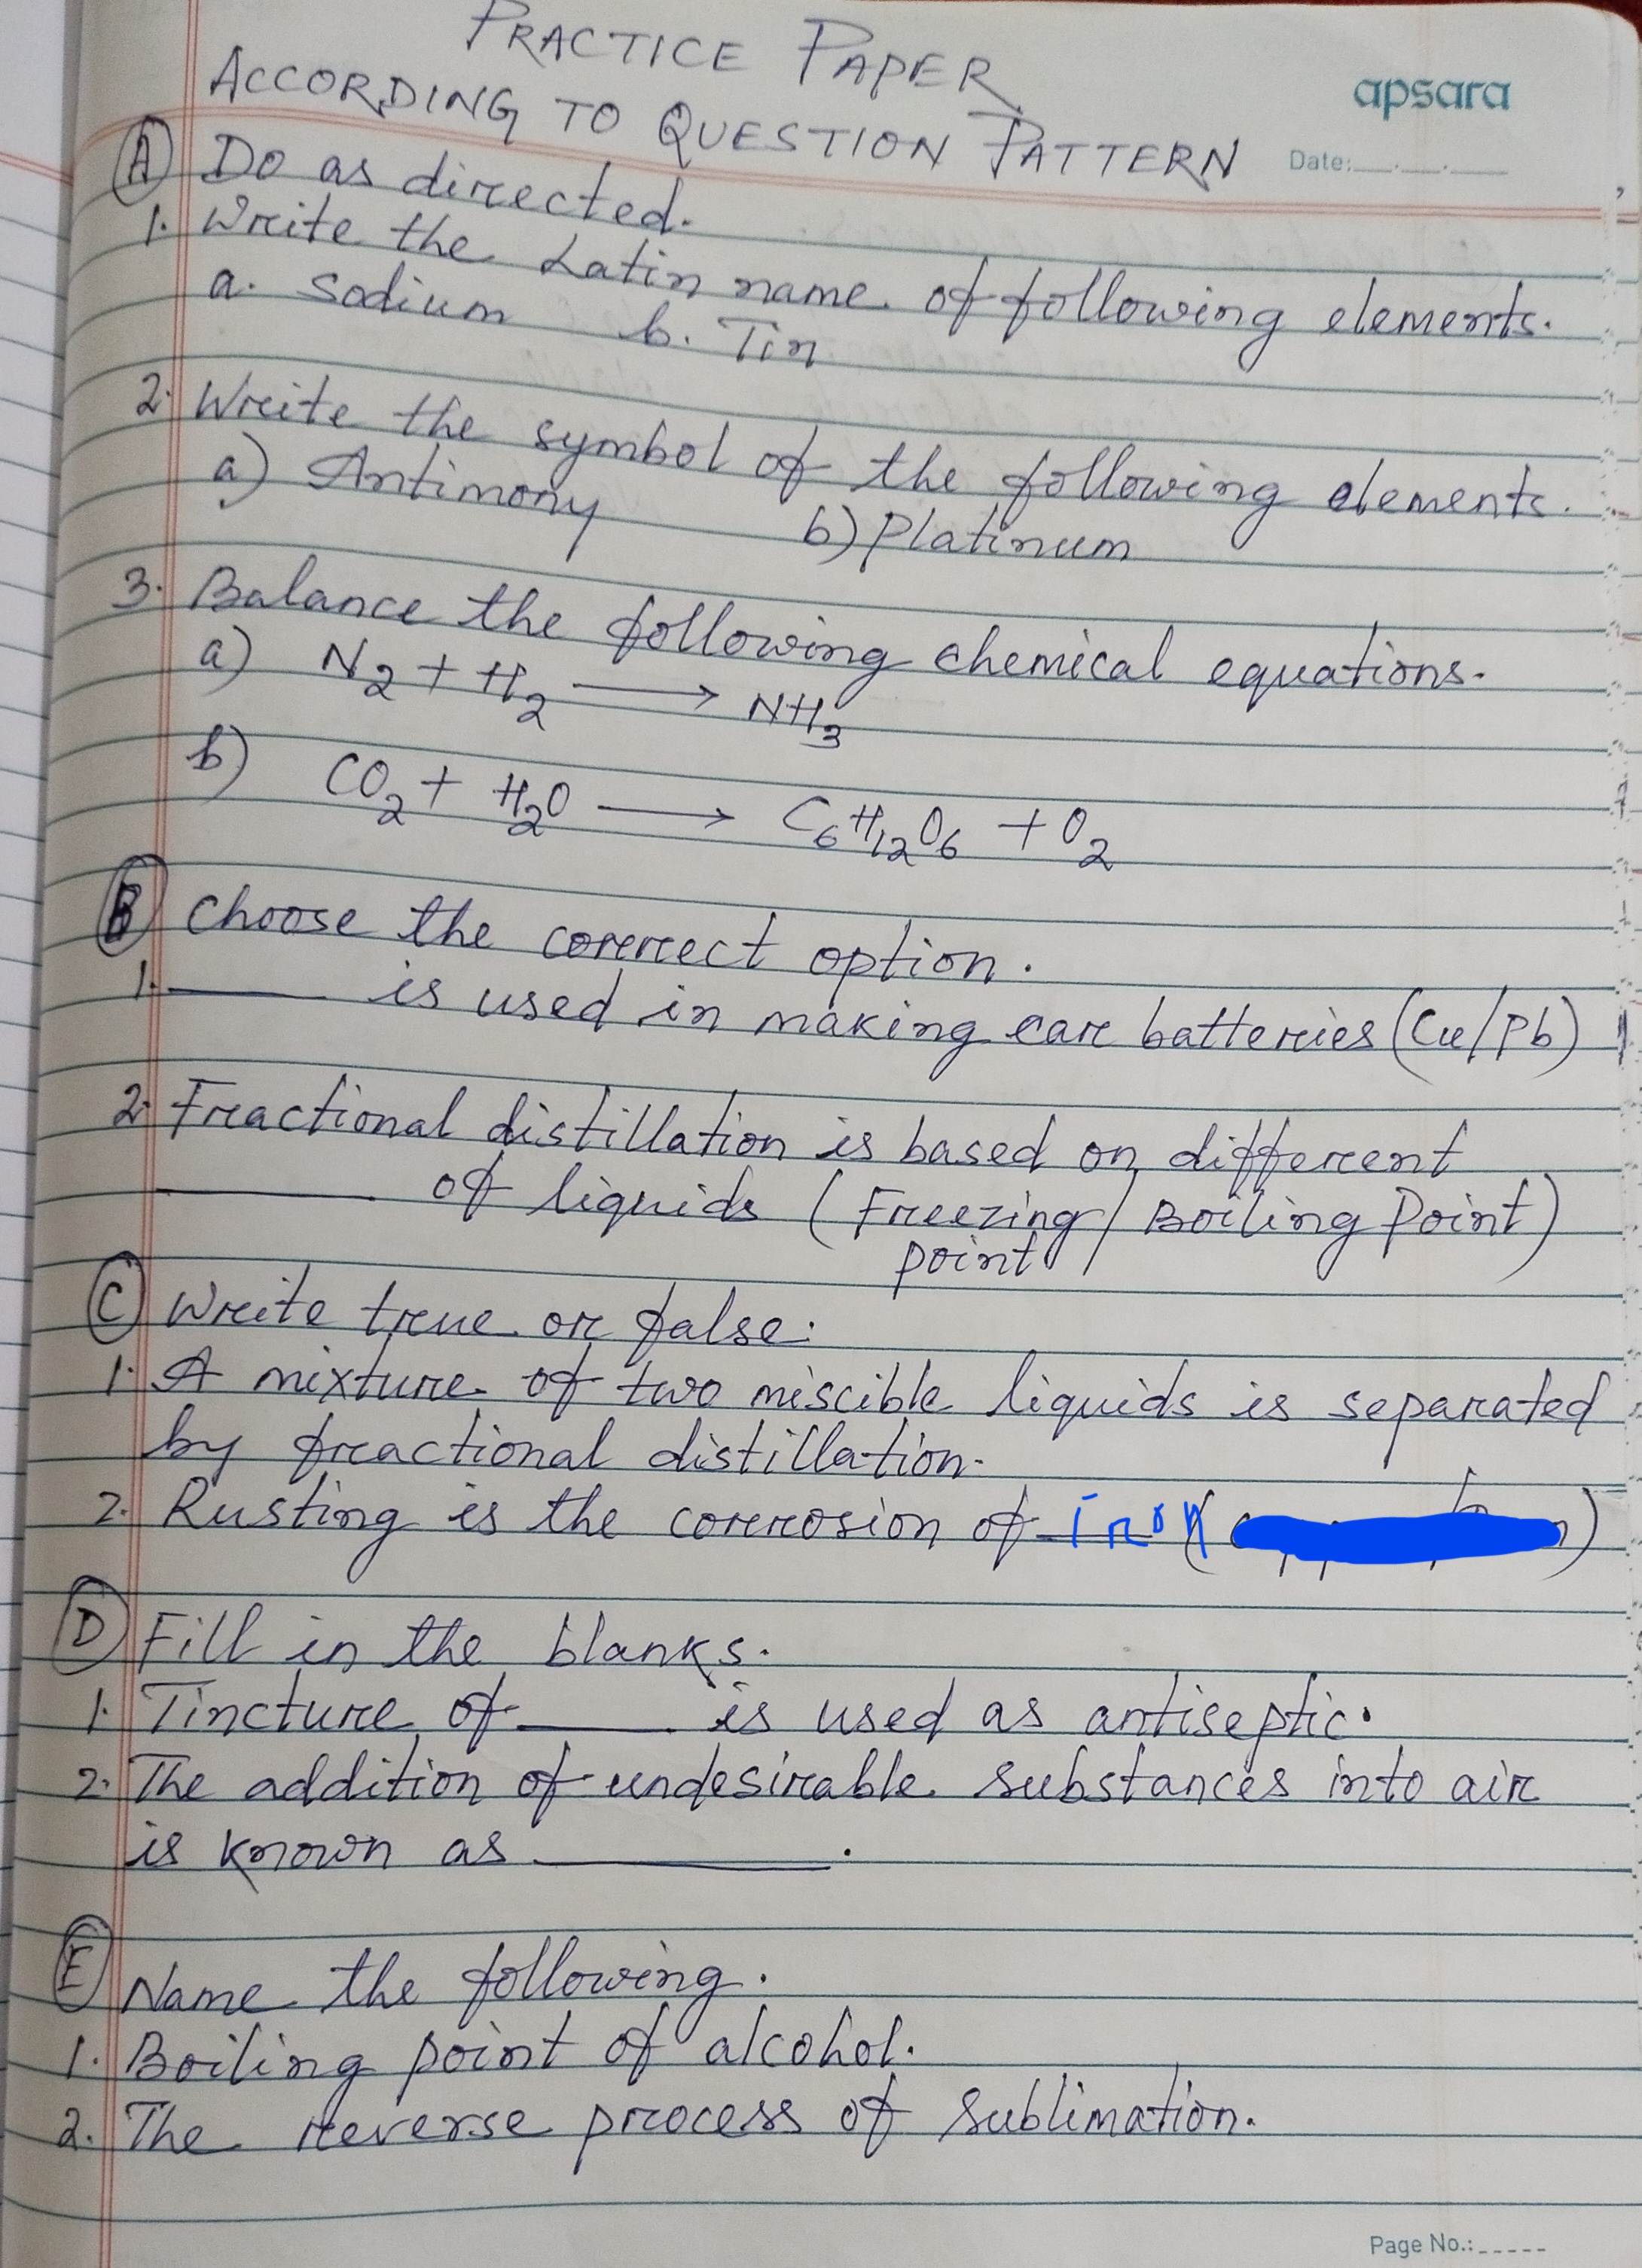 PRACTICE PAPER
ACCORDING TO QUESTION PATTERN
apsara
Date:
A Do as directed.
1. Write the Latin name of following elements.
a. Sodium b. Tin
2. Write the symbol of the following elements.
a) Antimony b) Platinum
3. Balance the following chemical equations.
a) N₂ + H₂ ⟶ NH₃
b) CO₂ + H₂O ⟶ C₆H₁₂O₆ + O₂
B Choose the correct option.
1. ____ is used in making car batteries (Cu/Pb)
2. Fractional distillation is based on different
____ of liquids (Freezing / Boiling Point)
point
C Write true or false:
1. A mixture of two miscible liquids is separated
by fractional distillation.
2. Rusting is the corrosion of iron (
D Fill in the blanks.
1. Tincture of ____ is used as antiseptic.
2. The addition of undesirable substances into air
is known as ____.
E Name the following.
1. Boiling point of alcohol.
2. The reverse process of sublimation.
Page No.: